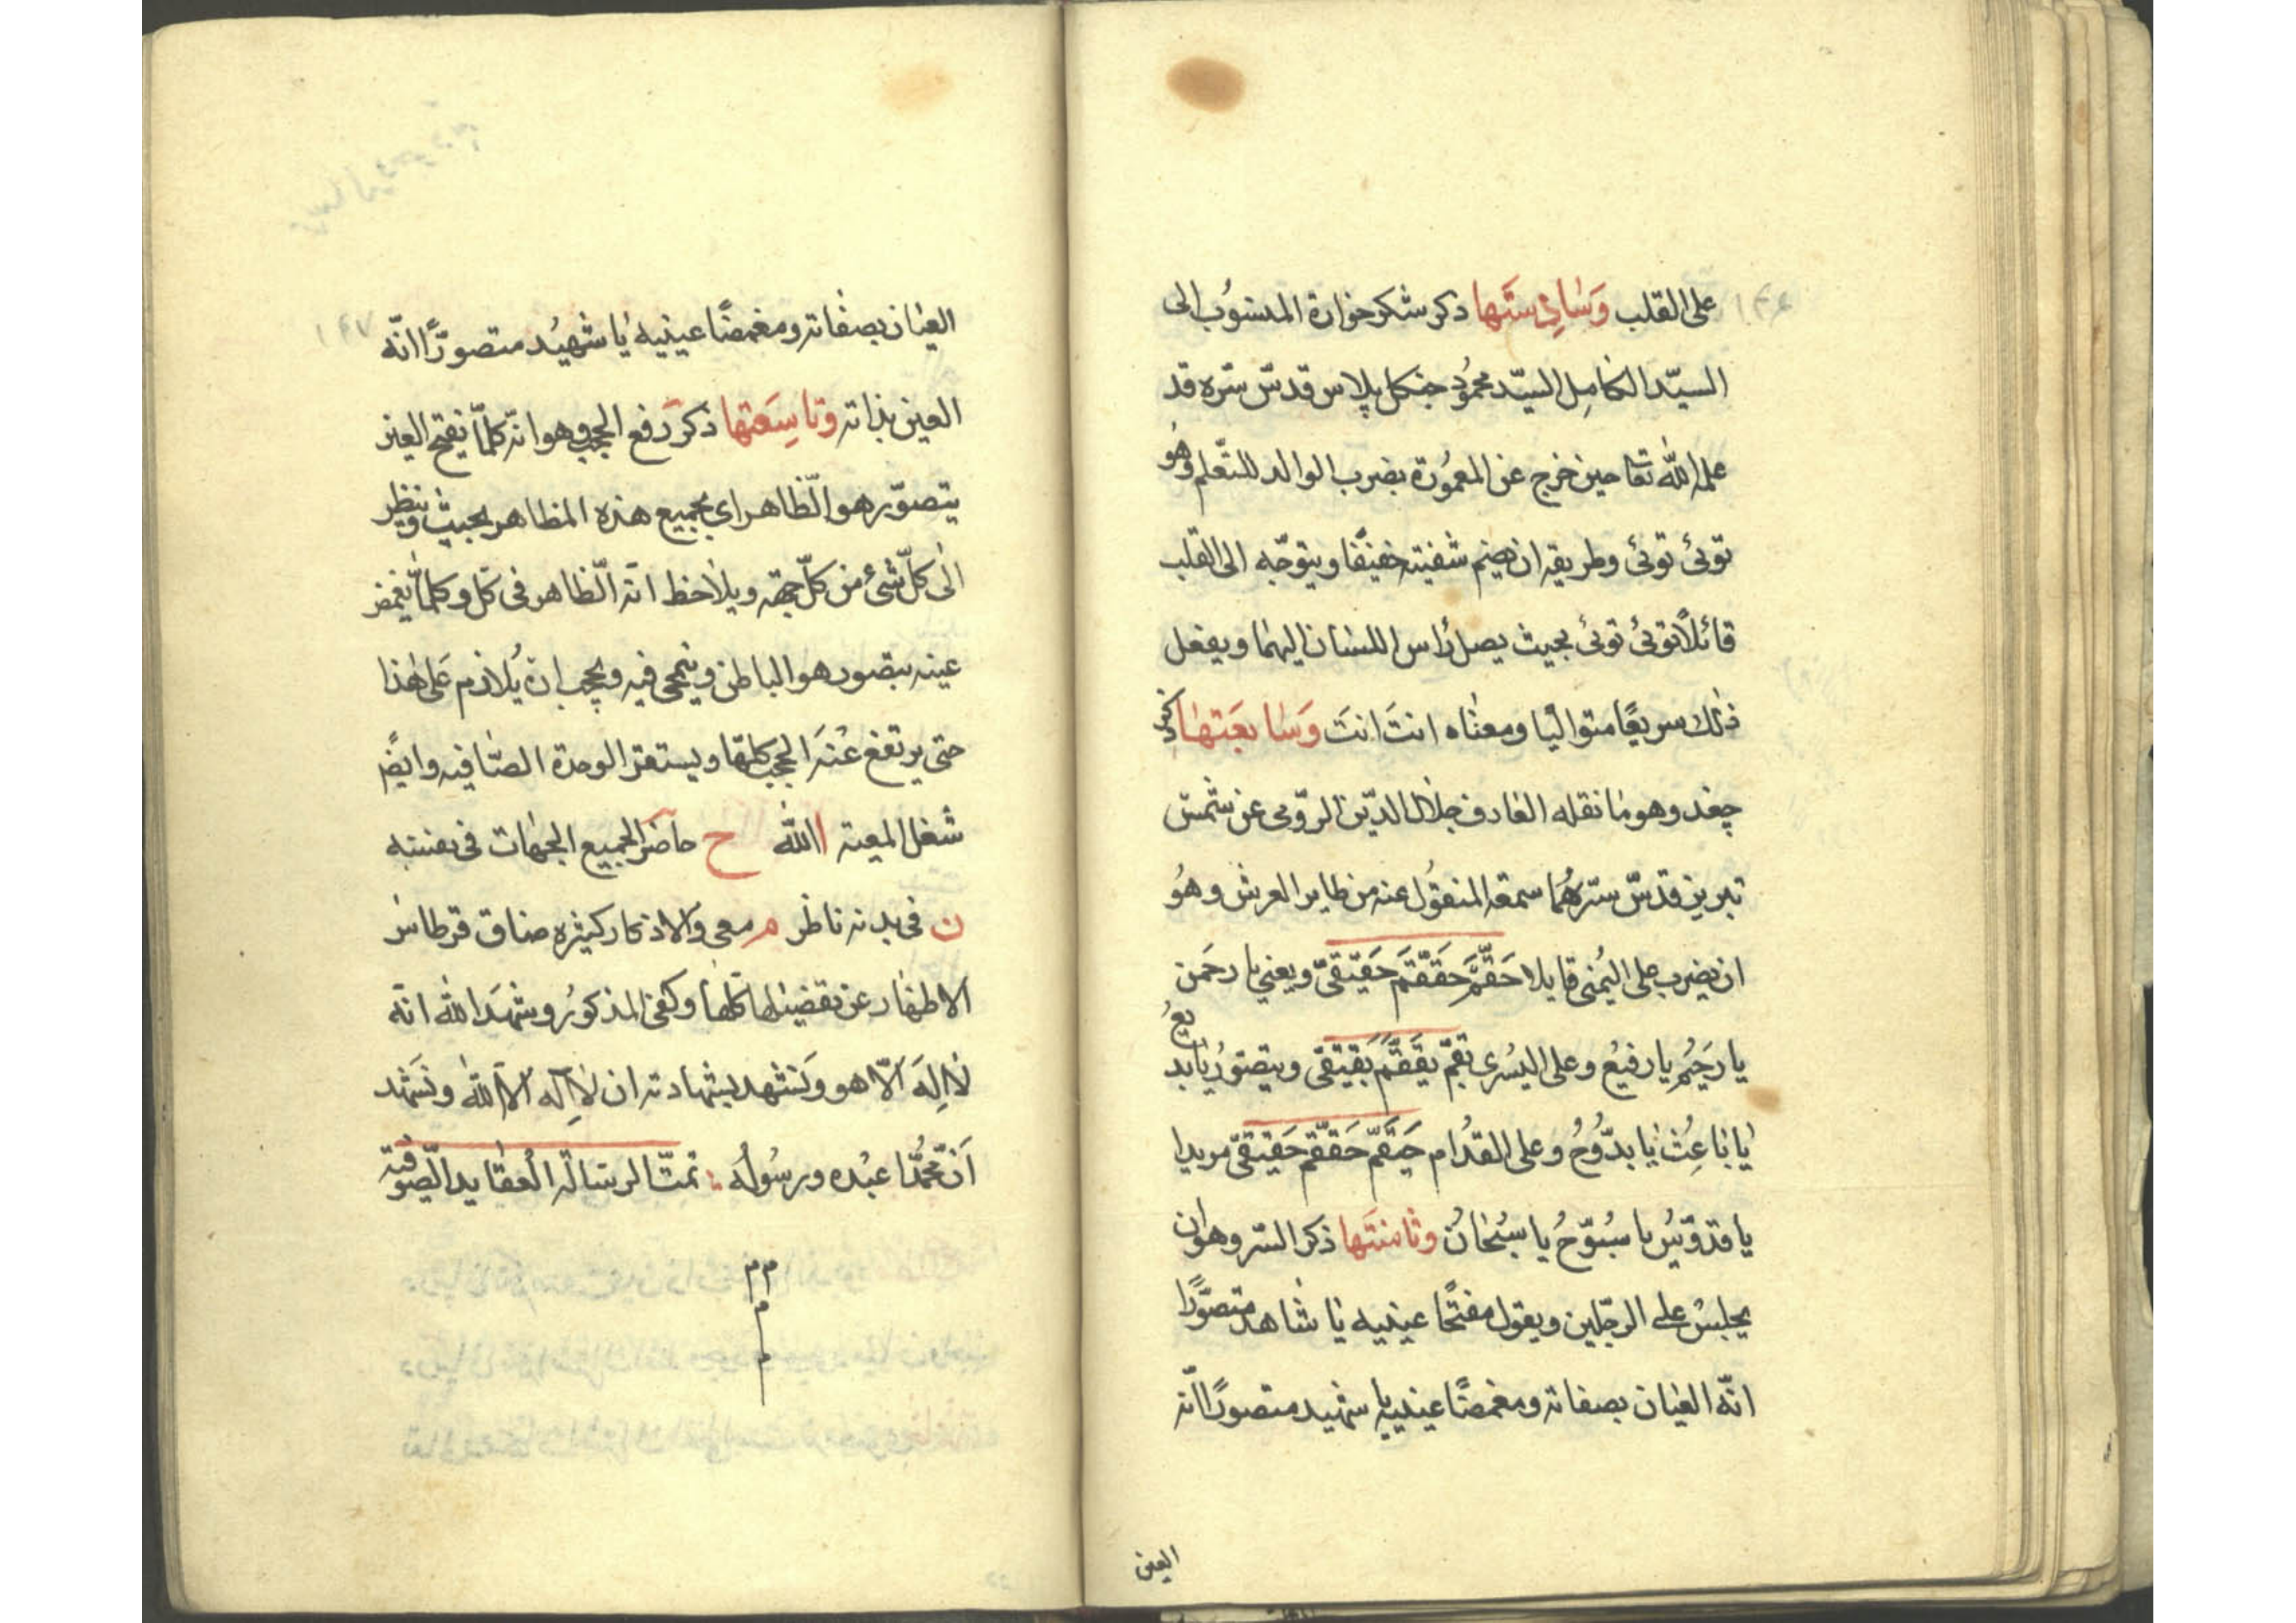 على القلب وَسَادِسَتها ذكر شكر خوارة المنسُوب الى
السيّد الكامِل السيّد محمُود جنكل پلاس قدسّ سرّه قد
علمه اللّٰه تعا حين خرج عن المعمُورة بضرب الوالد للتّعلم وهُو
توئ توئ وطريقه ان يضم شفتيه خفيفًا ويتوجّه الى القلب
قائلاً توئ توئ بحيث يصل رأس اللسان اليهما ويفعل
ذٰلك سريعًا متواليًا ومعناه انتَ انتَ وَسَابعَتهَا ذكر
چغد وهو ما نقله العارف جلال الدّين الرّومى عن شمس
تبريز قدسّ سرّهُمَا سمعه المنقُول عنه من طاير العرش وهُو
ان يضرب على اليُمنى قايلا حَقَّمَّ حَقَقَّمَ حَقيَقىّ ويعني يا رحمَن
يا رحَيمُ يا رفيعُ وعلى اليسُرى بَقمّ بقَقَّمَ بَقيَقىّ ويتصوّرُ يا بديعُ
يا باعِثُ يا بدّوُحُ وعلى القدُام حَقمَّ حَقَقَّم حَقيَقىّ مريدا
يا قدّوسُ يا سُبوّحُ يا سُبحَانُ وثامنَتَها ذكر السّر وهو ان
يجلسُ على الرجّلين ويقول مفتحًا عينيه يا شاهد متصوّرًا
انّه العيان بصفاته ومغمضًا عينيه يا شهيد متصورًا انّه
العين
العيان بصفاته ومغمضًا عينيه يا شهيُد متصورًّا انّه
العين بذاته وتاسِعَتها ذكر رَفع الحجب وهو انّه كلمّا يفتح العين
يتصوّر هو الظّاهر اى بجميع هذه المظاهر بحيث وينظر
الٰى كلّ شئ من كلّ جهة ويلاحظ انّه الظّاهر فى كلّ وكلمّا يغمض
عينه يتصور هو الباطن وينمحى فيه ويجب ان يُلازم عَلى هٰذا
حتى يرتفع عنْهَ الحجب كلهّا ويستقر الوحدة الصّافيه وايضًا
شغل المعية ا اللّٰه ح حاضر بجميع الجهات فى
ن فى بدنه ناظر م معى والاذكار كثيره ضاق قرطاس
الاظهار عن تفضيلها كلها وكفى المذكورُ وشهَد اللّٰه انّه
لا اِلهَ الاّ هو وَنشهد بشهادته ان لا اِلٓه الاّ اللّٰه ونَشهَد
اَنّ محُمّدًا عبْده ورسُولُه تمتّ الرسَالة العقايد الصّوفية
م م
م
م